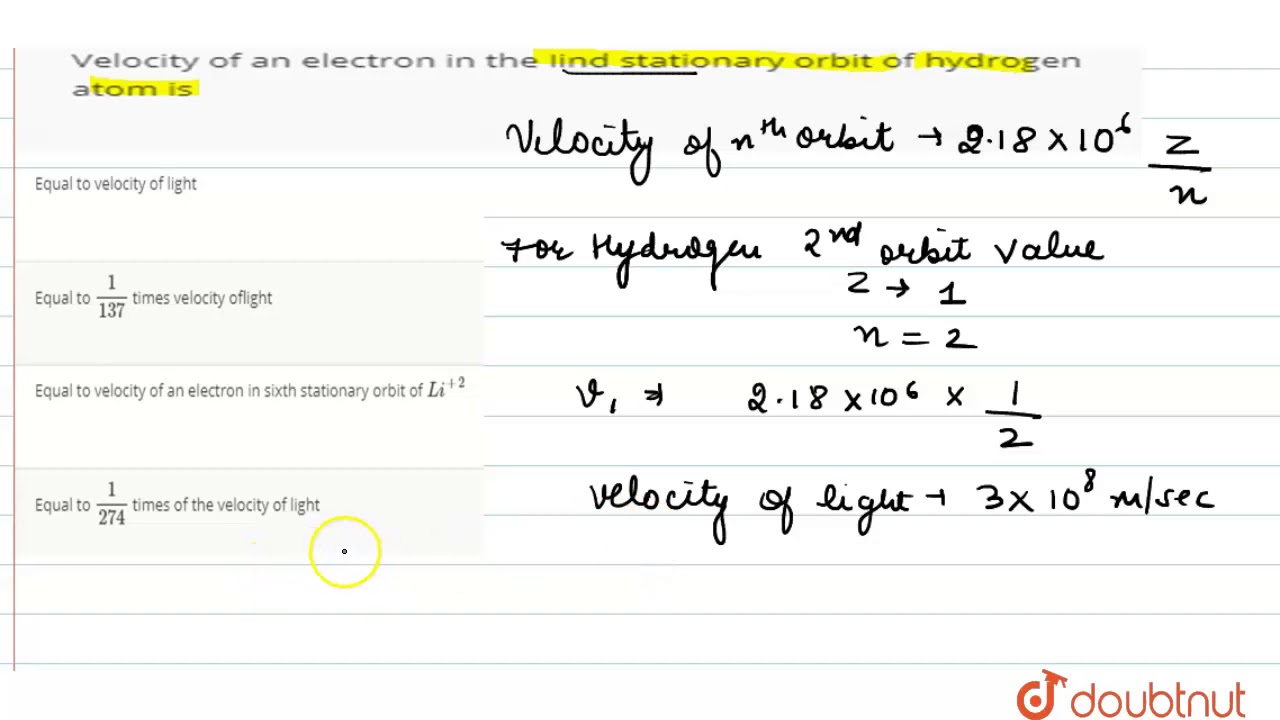 Velocity of an electron in the IInd stationary orbit of hydrogen
atom is
Velocity of nth orbit → 2.18 × 10^6 Z/n
Equal to velocity of light
For Hydrogen 2nd orbit value
Z → 1
Equal to 1/137 times velocity oflight
n = 2
Equal to velocity of an electron in sixth stationary orbit of Li^{+2}
v1 ⇒ 2.18 × 10^6 × 1/2
Equal to 1/274 times of the velocity of light
velocity of light → 3 × 10^8 m/sec
doubtnut